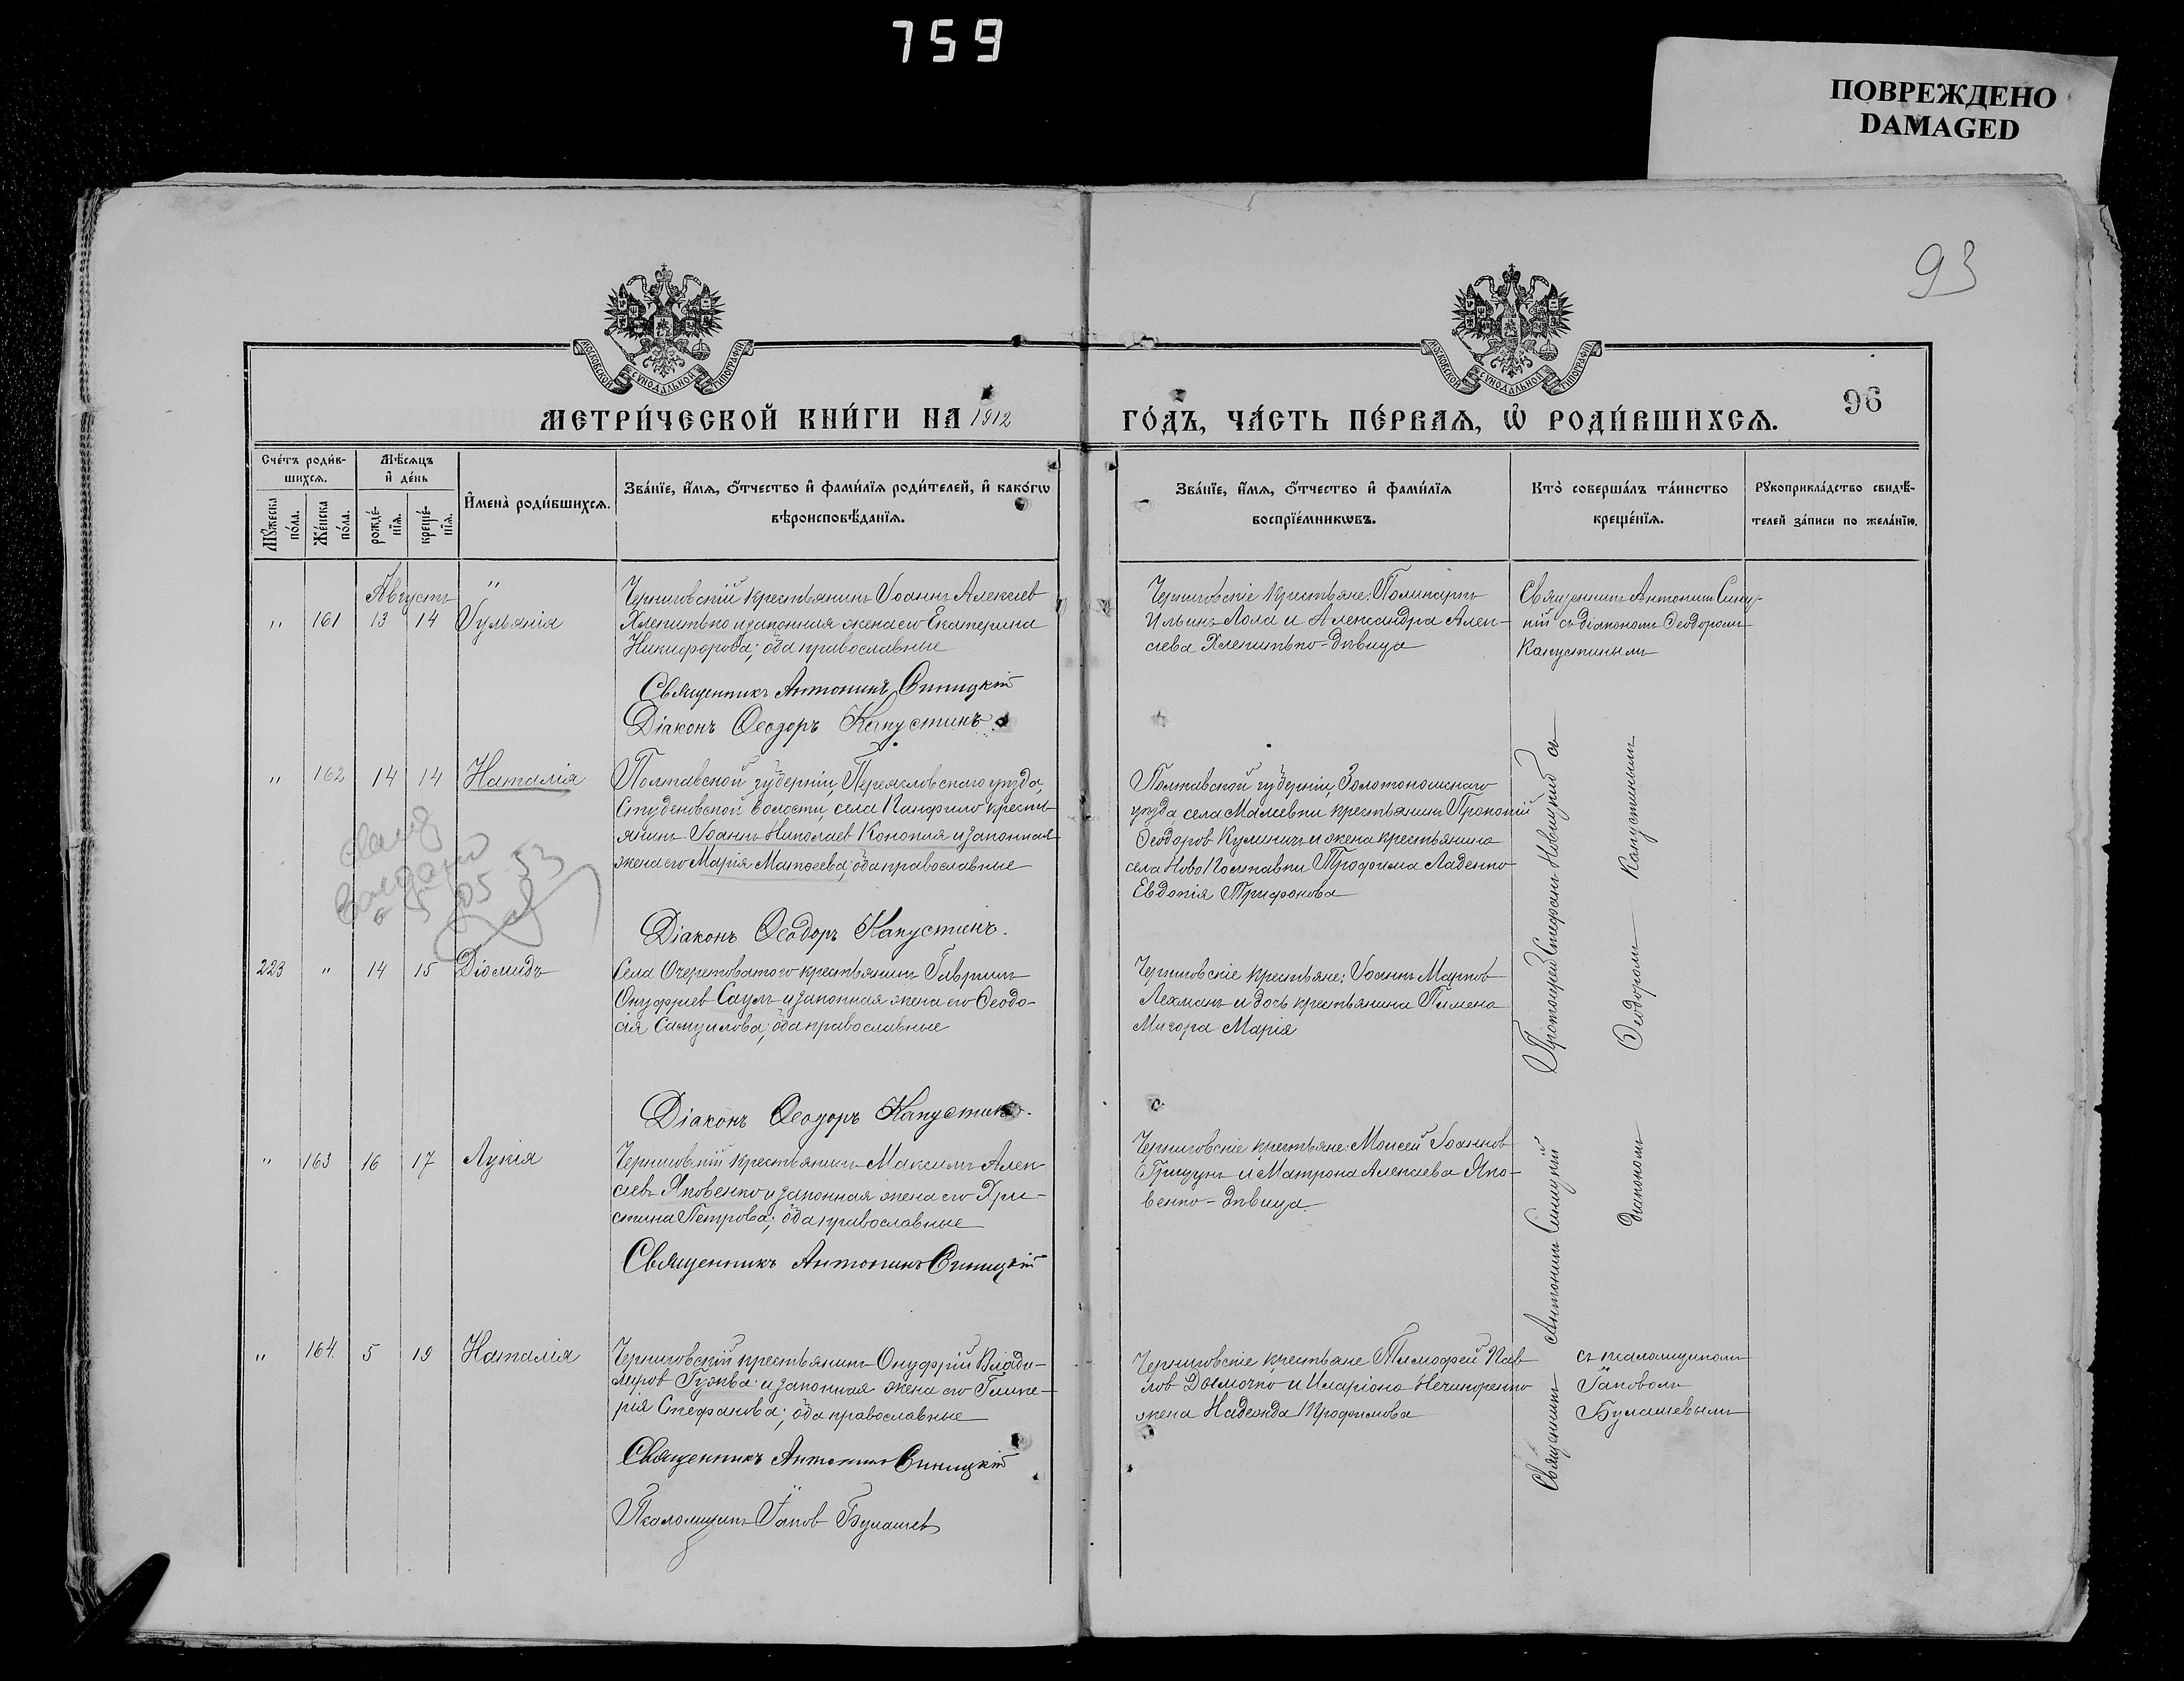 759
ПОВРЕЖДЕНО
DAMAGED
93
МОСКОВСКОЙ СУНОДАЛЬНОЙ ТИПОГРАФІИ
МОСКОВСКОЙ СУНОДАЛЬНОЙ ТИПОГРАФІИ
МЕТРИ́ЧЕСКОЙ КНИ́ГИ НА 1912
ГО́ДЪ, ЧА́СТЬ ПЕ́РВАѦ, Ѽ РОДИ́ВШИХСѦ.
96
Сче́тъ роди́в-
шихсѧ.
Мꙋ́жеска по́ла.
Же́нска по́ла.
Мѣ́сѧцъ
и҆ де́нь
рожде́-
нїѧ.
креще́-
нїѧ.
И҆мена̀ роди́вшихсѧ.
Зва́нїе, и҆́мѧ, ѻ҆́тчество и҆ фами́лїѧ роди́телей, и҆ како́гѡ
вѣроисповѣ́данїѧ.
Зва́нїе, и҆́мѧ, ѻ҆́тчество и҆ фами́лїѧ
воспрїе́мникѡвъ.
Кто̀ соверша́лъ та́инство
креще́нїѧ.
Рꙋкоприкла́дство свидѣ́-
телей за́писи по жела́нїю.
Августъ "
" 161 13 14 Іуліанія
Черниговскій крестьянинъ Іоаннъ Алексіев
Хлепитько и законная жена его Екатерина
Никифорова; оба православные
Священникъ Антонинъ Синицкій
Діаконъ Ѳеодоръ Капустинъ
Черниговскіе крестьяне: Поликарпъ
Ильинъ Лола и Александра Алек-
сіева Хлепитько - дѣвица
Священникъ Антонинъ Синиц-
кій съ діакономъ Ѳеодоромъ
Капустинымъ
" 162 14 14 Наталія
Полтавской губерніи, Переясловскаго уѣзда,
Студеновской волости, села Панфило крестья-
янинъ Іоаннъ Николаев Конопля и законная
жена его Марія Матѳеева; оба православные
Діаконъ Ѳеодоръ Капустинъ.
Полтавской губерніи, Золотоношскаго
уѣзда, села Мамевки крестьянинъ Прокопій
Ѳеодоров Куминич и жена крестьянина
села Ново Полтавки Трофима Ладенко
Евдокія Трифонова
5 05 53
223 " 14 15 Діомидъ
Села Очеретоватого крестьянинъ Гавріилъ
Онуфріев Саулъ и законная жена его Ѳеодо-
сія Самуилова; оба православные
Діаконъ Ѳеодоръ Капустинъ.
Черниговскіе крестьяне: Іоаннъ Марков
Лехманъ и дочь крестьянина Пимена
Мигора Марія
Протоіерей Стефанъ Новицкій съ
Ѳеодоромъ Капустинымъ
" 163 16 17 Лукія
Черниговскій крестьянинъ Максимъ Алек-
сіевъ Яковенко и законная жена его Хри-
стина Петрова; оба православные
Священникъ Антонинъ Синицкій
Черниговскіе крестьяне: Моисей Іоаннов
Грицунъ и Матрона Алексіева Яко-
венко - дѣвица
Священникъ Антонинъ Синицкій
діакономъ
" 164. 5 19 Наталія
Черниговскій крестьянинъ Онуфрій Влади-
міров Гужва и законная жена его Глике-
рія Стефанова; оба православные
Священникъ Антонинъ Синицкій
Псаломщикъ Іаков Булашев
Черниговскіе крестьяне Тимофей Пав-
лов Дымочко и Иларіона Нечипоренко
жена Надежда Трофимова
съ псаломщикомъ
Іаковомъ
Булашевымъ